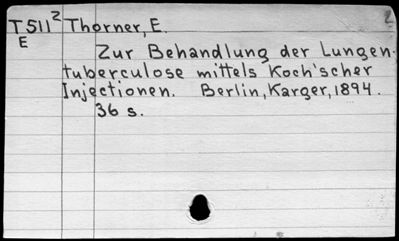 T511² Thorner, E.
E
Zur Behandlung der Lungen-
tuberculose mittels Koch'scher
Injectionen. Berlin, Karger, 1894.
36 s.
2